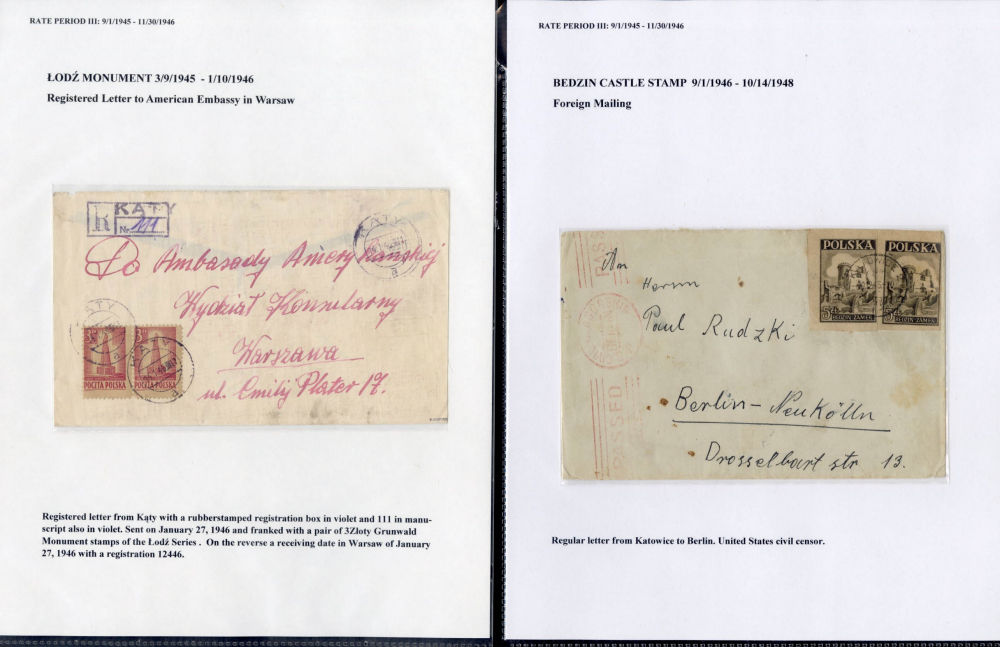 RATE PERIOD III: 9/1/1945 - 11/30/1946
ŁODŹ MONUMENT 3/9/1945 - 1/10/1946
Registered Letter to American Embassy in Warsaw
R
KĄTY
Nr. 111
KĄTY
a
Do Ambasady Amerykańskiej
Wydział Konsularny
Warszawa
ul. Emilij Plater 17.
KĄTY
a
KĄTY
a
POCZTA POLSKA
POCZTA POLSKA
Registered letter from Kąty with a rubberstamped registration box in violet and 111 in manu-
script also in violet. Sent on January 27, 1946 and franked with a pair of 3Zloty Grunwald
Monument stamps of the Łodź Series . On the reverse a receiving date in Warsaw of January
27, 1946 with a registration 12446.
RATE PERIOD III: 9/1/1945 - 11/30/1946
BEDZIN CASTLE STAMP 9/1/1946 - 10/14/1948
Foreign Mailing
POLSKA
POLSKA
5 ZŁ
BĘDZIN-ZAMEK
5 ZŁ
BĘDZIN-ZAMEK
PAS
PASSED
An
Herrn
Paul Rudzki
Berlin-Neukölln
Drosselbart str 13.
Regular letter from Katowice to Berlin. United States civil censor.